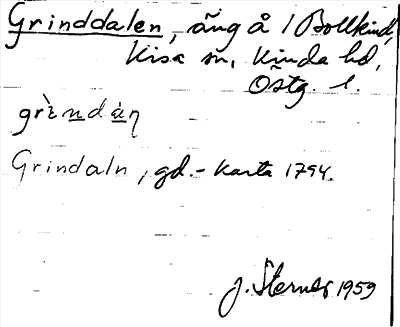 Grinddalen, äng å 1 Bollkind,
Kisa sn, Kinda hd,
Östg. l.
grìndàn
Grindaln, gd.- karta 1794.
J. Sterner 1959